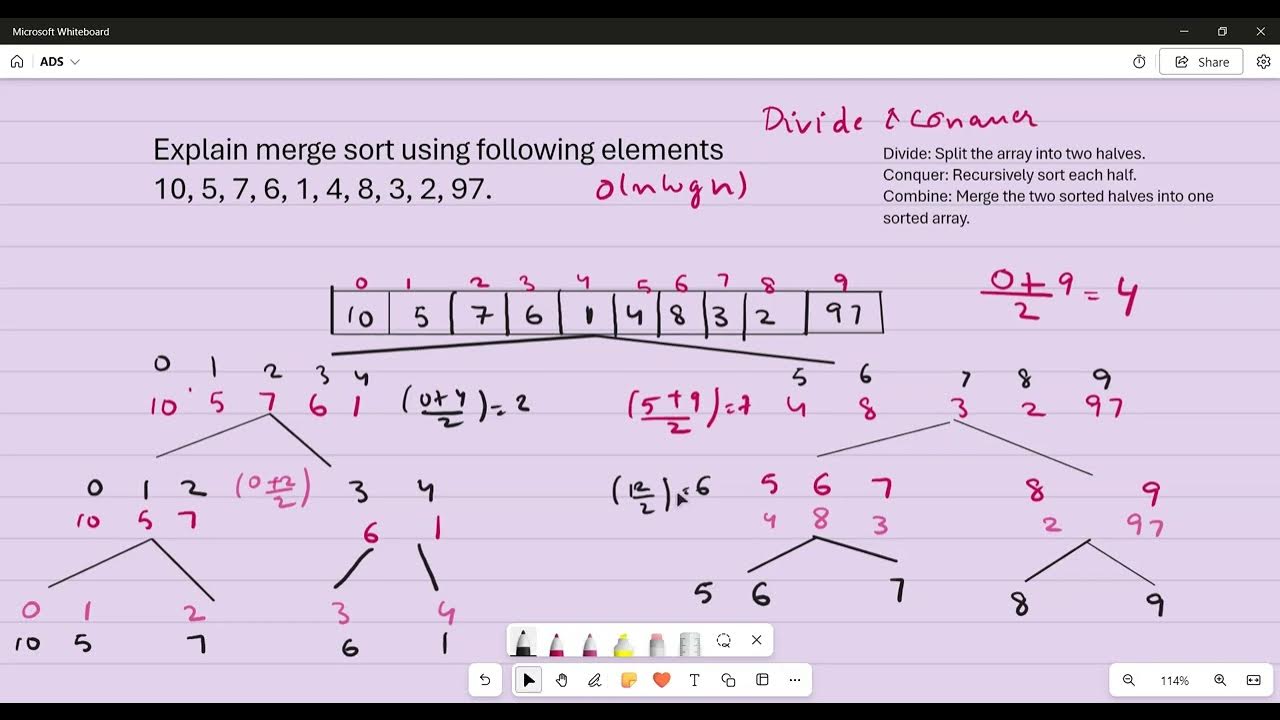 Microsoft Whiteboard
ADS
Share
Divide & Conauer
Explain merge sort using following elements
10, 5, 7, 6, 1, 4, 8, 3, 2, 97.
O(n log n)
Divide: Split the array into two halves.
Conquer: Recursively sort each half.
Combine: Merge the two sorted halves into one
sorted array.
0 1 2 3 4 5 6 7 8 9
10 5 7 6 1 4 8 3 2 97
0+9/2 = 4
0 1 2 3 4
10 5 7 6 1 (0+4/2) = 2
5 6 7 8 9
(5+9/2) = 7 4 8 3 2 97
0 1 2 (0+2/2) 3 4
10 5 7 6 1
(12/2) = 6 5 6 7 8 9
4 8 3 2 97
0 1 2 3 4
10 5 7 6 1
5 6 7 8 9
T
114%